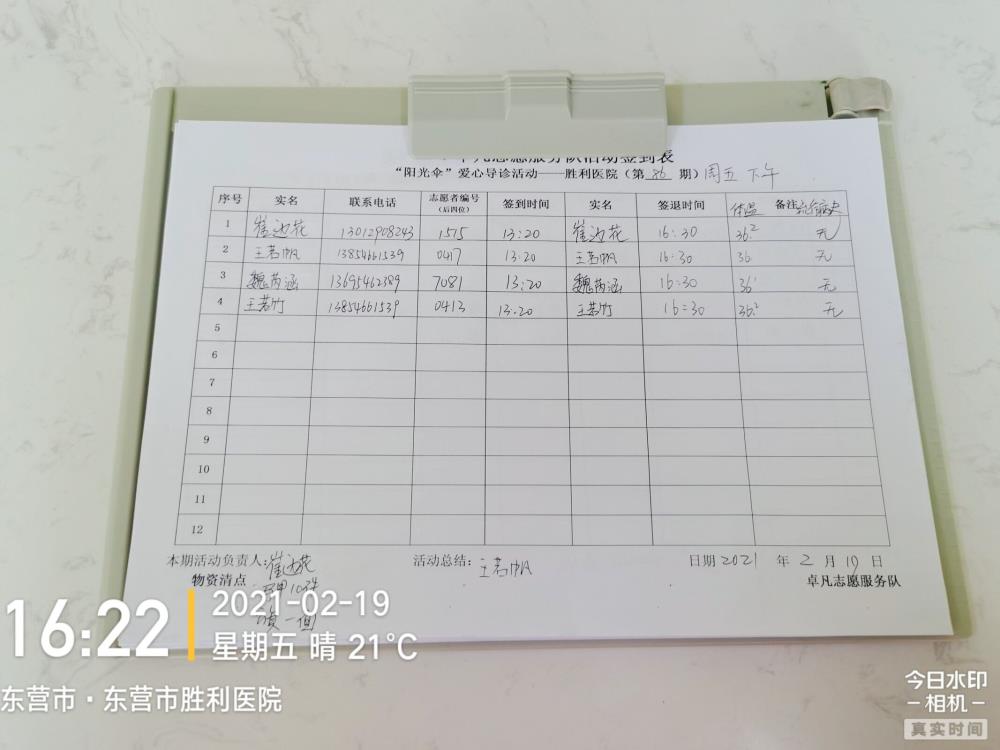 卓凡志愿服务队活动签到表
“阳光伞”爱心导诊活动——胜利医院（第 86 期）周五 下午
序号 实名 联系电话 志愿者编号（后四位） 签到时间 实名 签退时间 体温 备注
1 崔迎花 13012908243 1515 13:20 崔迎花 16:30 36.2 无
2 王若帆 13854661539 0417 13:20 王若帆 16:30 36 无
3 魏芮涵 13695462389 7081 13:20 魏芮涵 16:30 36.1 无
4 王若竹 13854661539 0413 13:20 王若竹 16:30 36.2 无
5
6
7
8
9
10
11
12
本期活动负责人：崔迎花 活动总结：王若帆 日期 2021 年 2 月 19 日
物资清点 卓凡志愿服务队
16:22
2021-02-19
星期五 晴 21°C
东营市·东营市胜利医院
今日水印
-相机-
真实时间